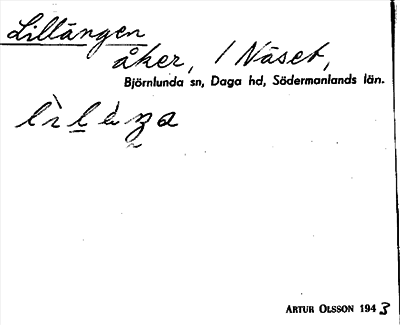 Lillängen
åker, 1 Näset,
Björnlunda sn, Daga hd, Södermanlands län.
ARTUR OLSSON 1943